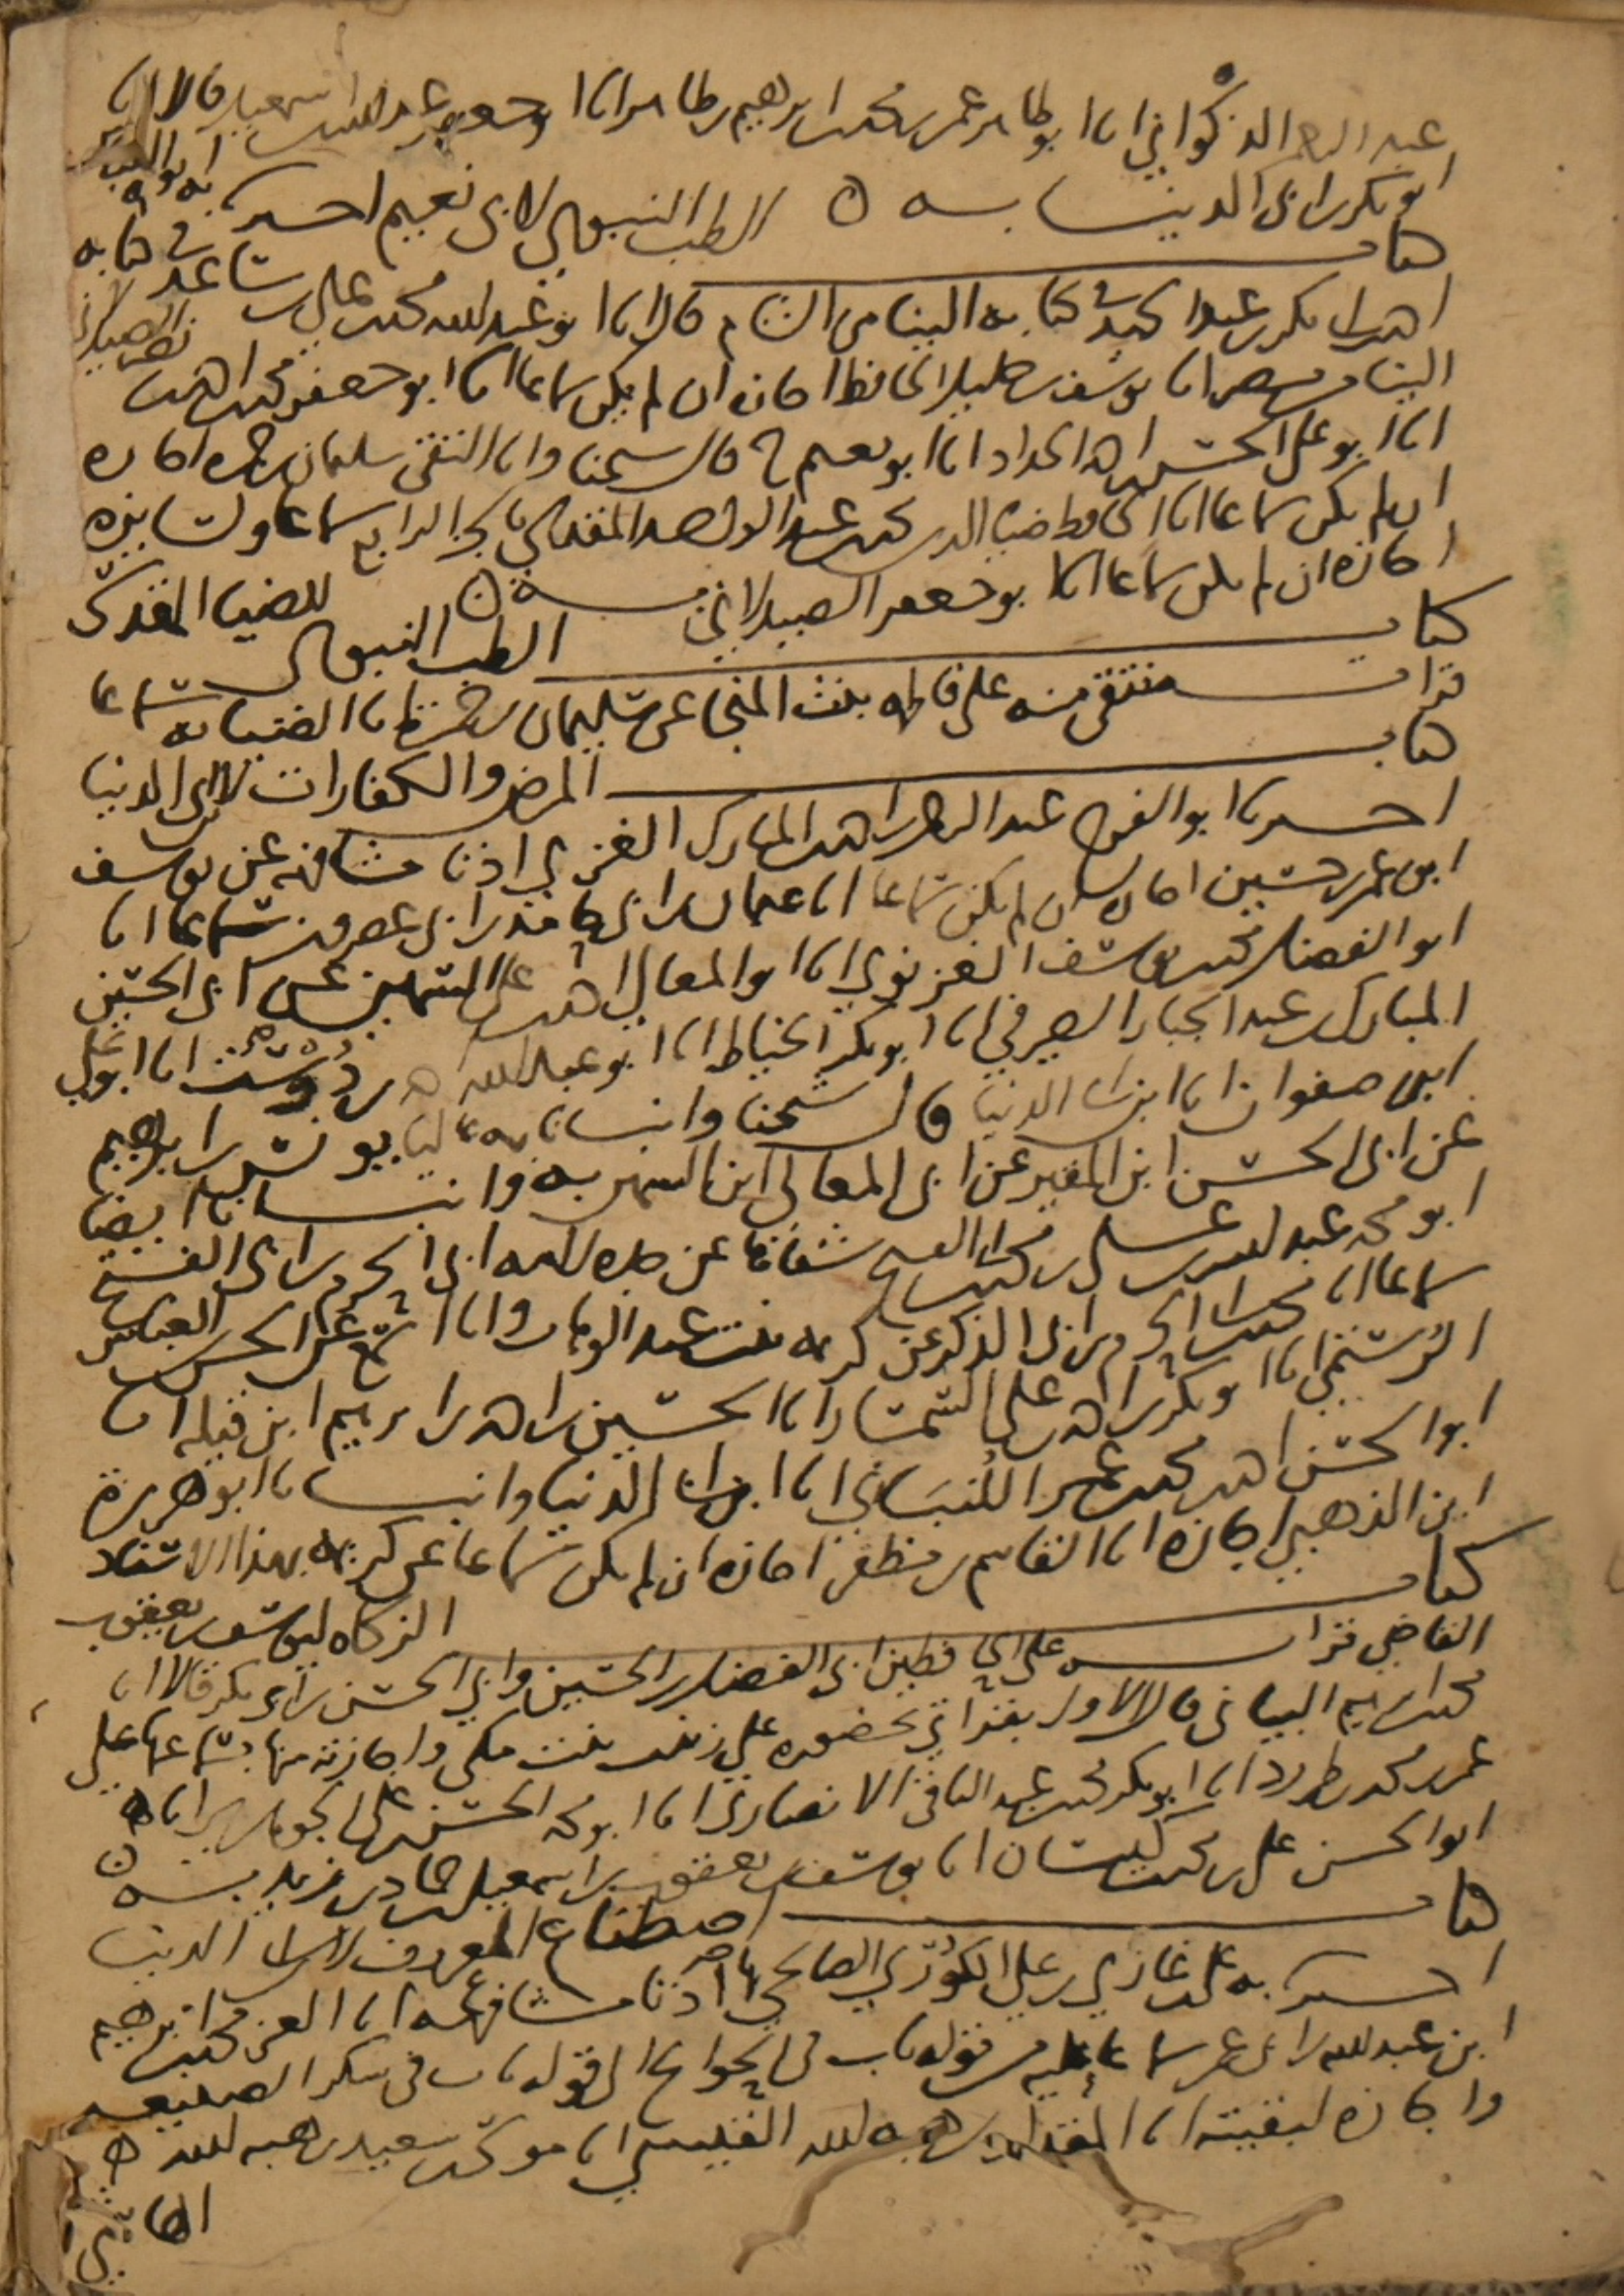 عبد الرحمن الذكواني انا ابو طاهر عمر بن محمد بن ابرهيم بن طاهر انا ابو جعفر عبد الله بن اسمعيل قالا انا
ابو بكر بن ابي الدنيا به ه
كتاب الطب النبوي لابي نعيم اخبرنا به ابو العباس
احمد بن ابي بكر بن عبد الحميد في كتابه الينا من الشام قال انا ابو عبد الله محمد بن علي بن ساعد في كتابه
الينا من مصر انا يوسف بن خليل الحافظ اجازه ان لم يكن سماعا انا ابو جعفر محمد بن احمد بن نصر الصيدلاني
انا ابو علي الحسن بن احمد الحداد انا ابو نعيم ح قال شيخنا وانا التقي سليمان بن حمزه اجازه
ان لم يكن سماعا انا الحافظ ضياء الدين محمد بن عبد الواحد المقدسي بالجزء الرابع سماعا ولسايره
اجازه ان لم يكن سماعا انا ابو جعفر الصيدلاني بسنده ه
كتاب الطب النبوي للضياء المقدسي
قرات منتقى منه على فاطمه بنت المنجا عن سليمان بن حمزه انا الضياء به سماعا
كتاب المرض والكفارات لابن ابي الدنيا
اخبرنا ابو الفرج عبد الرحمن بن احمد بن المبارك الغزي اذنا مشافهه عن يوسف
ابن عمر بن حسين اجازه ان لم يكن سماعا انا عثمان بن ابي حامد بن ابي عصرون سماعا انا
ابو الفضل محمد بن يوسف الغزنوي انا ابو المعالي احمد بن علي بن السمين عن ابي الحسين
المبارك بن عبد الجبار الصيرفي انا ابو بكر الخياط انا ابو عبد الله احمد بن دوست انا ابو علي
ابن صفوان انا ابن ابي الدنيا قال شيخنا وانبانا به عاليا يونس بن ابراهيم
عن ابي الحسن ابن المقير عن ابي المعالي ابن السمين به وانبانا ايضا
ابو محمد عبد الله بن علي بن محمد بن الفتح شفاها عن هبة الله ابي الحرم بن ابي الفتح
سماعا انا محمد بن ابي الحرم بن ابي الذكر عن كريمه بنت عبد الوهاب وانا اسمع عن الحسن بن العباس
الرستمي انا ابو بكر بن احمد بن علي السمسار انا الحسين بن احمد بن ابرهيم ابن قبيله انا
ابو الحسن احمد بن محمد بن عمر اللنباني انا ابن ابي الدنيا وانبانا ابو هريرة
ابن الذهبي اجازه انا القاسم بن مظفر اجازه ان لم يكن سماعا عن كريمه بهذا الاسناد
كتاب الزكاه ليوسف بن يعقوب
القاضي قرات على الحافظين ابي الفضل بن الحسين وابي الحسن بن ابي بكر قالا انا
محمد بن ابرهيم البياني قال الاول بقراتي بحضوره على زينب بنت مكي واجازته منها بسماعها على
عمر بن محمد بن طبرزد انا ابو بكر محمد بن عبد الباقي الانصاري انا ابو محمد الحسن بن علي الجوهري انا
ابو الحسن علي بن محمد بن كيسان انا يوسف بن يعقوب بن اسمعيل بن حماد بن زيد بسنده ه
كتاب اصطناع المعروف لابن ابي الدنيا
اخبرنا به علي بن غازي بن علي الكوري الصالحي اذنا مشافهه انا العز محمد بن ابرهيم
ابن عبد الله بن ابي عمر سماعا عليه من قوله باب في الحوائج الى قوله باب في شكر الصنيعه
واجازه لبقيته انا المقداد بن هبه الله القيسي انا موكد سعيد بن هبه الله